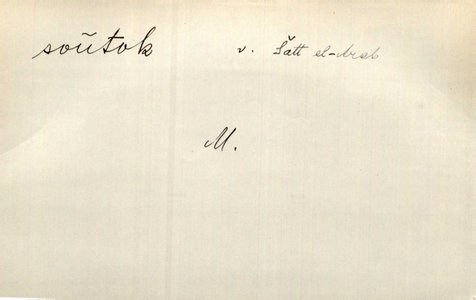 soũtok v. Šatt el-Arab
M.